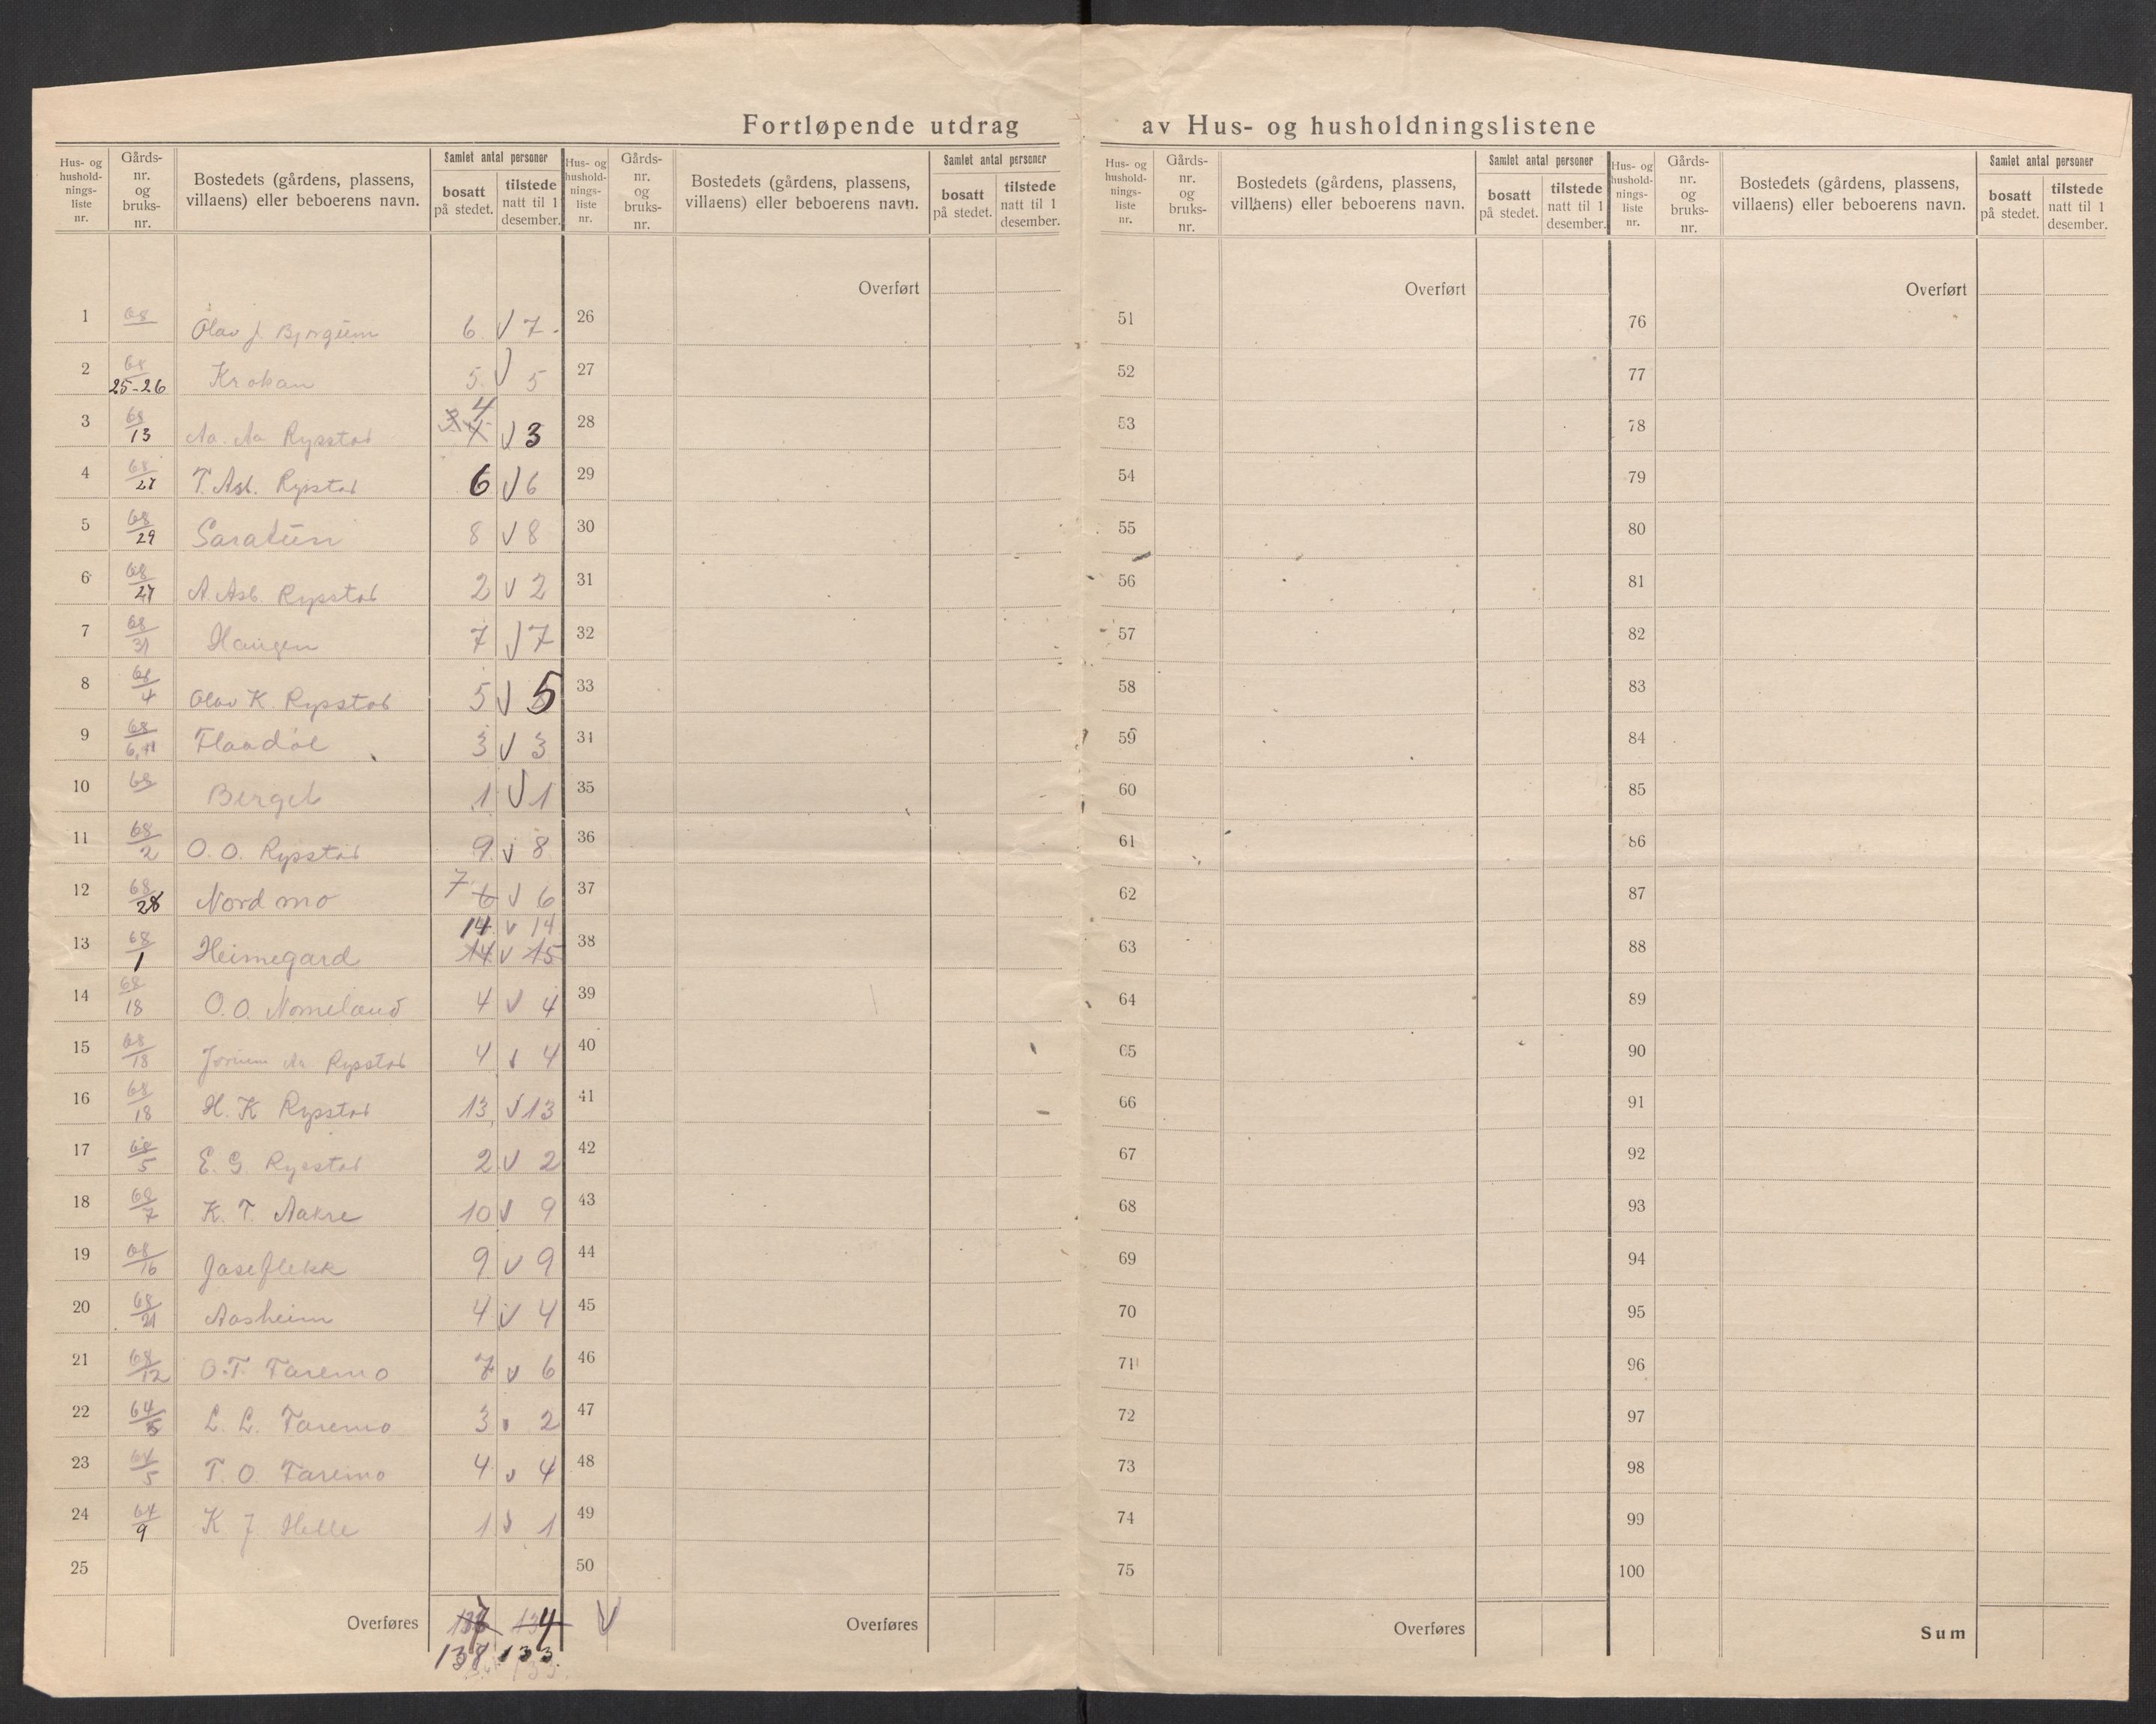 Fortløpende utdrag av Hus- og husholdningslistene
Hus- og hushold- nings- liste nr. | Gårds- nr. og bruks- nr. | Bostedets (gårdens, plassens, villaens) eller beboerens navn. | Samlet antal personer | bosatt på stedet. | tilstede natt til 1 desember.
Hus- og hushold- nings- liste nr. | Gårds- nr. og bruks- nr. | Bostedets (gårdens, plassens, villaens) eller beboerens navn. | Samlet antal personer | bosatt på stedet. | tilstede natt til 1 desember.
Hus- og hushold- nings- liste nr. | Gårds- nr. og bruks- nr. | Bostedets (gårdens, plassens, villaens) eller beboerens navn. | Samlet antal personer | bosatt på stedet. | tilstede natt til 1 desember.
Hus- og hushold- nings- liste nr. | Gårds- nr. og bruks- nr. | Bostedets (gårdens, plassens, villaens) eller beboerens navn. | Samlet antal personer | bosatt på stedet. | tilstede natt til 1 desember.
Overført Overført Overført
1 68 Olav J. Bjorgum 6 V 7 26 51 76
2 68/25-26 Krokan 5 V 5 27 52 77
3 68/13 Aa. Aa Rysstad 4 V 3 28 53 78
4 68/27 T. Asb. Rysstad 6 V 6 29 54 79
5 68/29 Saratun 8 V 8 30 55 80
6 68/27 A. Asb. Rysstad 2 V 2 31 56 81
7 68/31 Haugen 7 V 7 32 57 82
8 68/4 Olav K. Rysstad 5 V 5 33 58 83
9 68/6,11 Flaadøl 3 V 3 34 59 84
10 68 Berget 1 V 1 35 60 85
11 68/2 O. O. Rysstad 9 V 8 36 61 86
12 68/28 Nordmo 7 6 V 6 37 62 87
14 V 14
13 68/1 Heimegard 14 V 15 38 63 88
14 68/18 O. O. Nomeland 4 V 4 39 64 89
15 68/18 Aa Rysstad 4 V 4 40 65 90
16 68/18 H. K Rysstad 13 V 13 41 66 91
17 68/5 E. G. Rysstad 2 V 2 42 67 92
18 68/7 K. T. Aakre 10 V 9 43 68 93
19 68/16 Jaseflekk 9 V 9 44 69 94
20 68/21 Aasheim 4 V 4 45 70 95
21 68/12 O. T. Taremo 7 V 6 46 71 96
22 64/5 L. L. Taremo 3 V 2 47 72 97
23 64/5 T. O. Taremo 4 V 4 48 73 98
24 64/9 K J Helle 1 V 1 49 74 99
25 50 75 100
Overføres 137 134 V Overføres Overføres Sum
138 133